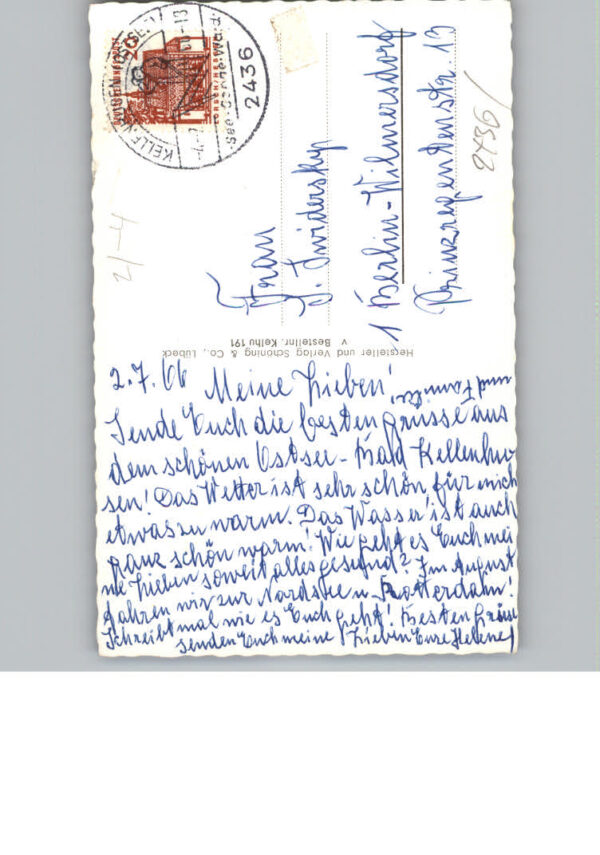 DEUTSCHE BUNDESPOST
20
LORSCH/HESSEN
See·Sonne·Wald
2436
2436/
21-4
Frau
J. Swidersky
1 Berlin-Wilmersdorf
Prinzregentenstr. 13
Hersteller und Verlag Schöning & Co., Lübeck
v Bestellnr. Kelhu 191
2.7.66 Meine Lieben!
und Familie!
Sende Euch die besten Grüsse aus
dem schönen Ostsee-Bad Kellenhu
sen! Das Wetter ist sehr schön, für mich
etwas zu warm. Das Wasser ist auch
ganz schön warm! Wie geht es Euch mei
ne Lieben soweit alles gesund? Im August
fahren wir zur Nordsee u. Rotterdam!
Schreibt mal wie es Euch geht! Besten Grüsse
senden Euch meine Lieben Eure Helene!